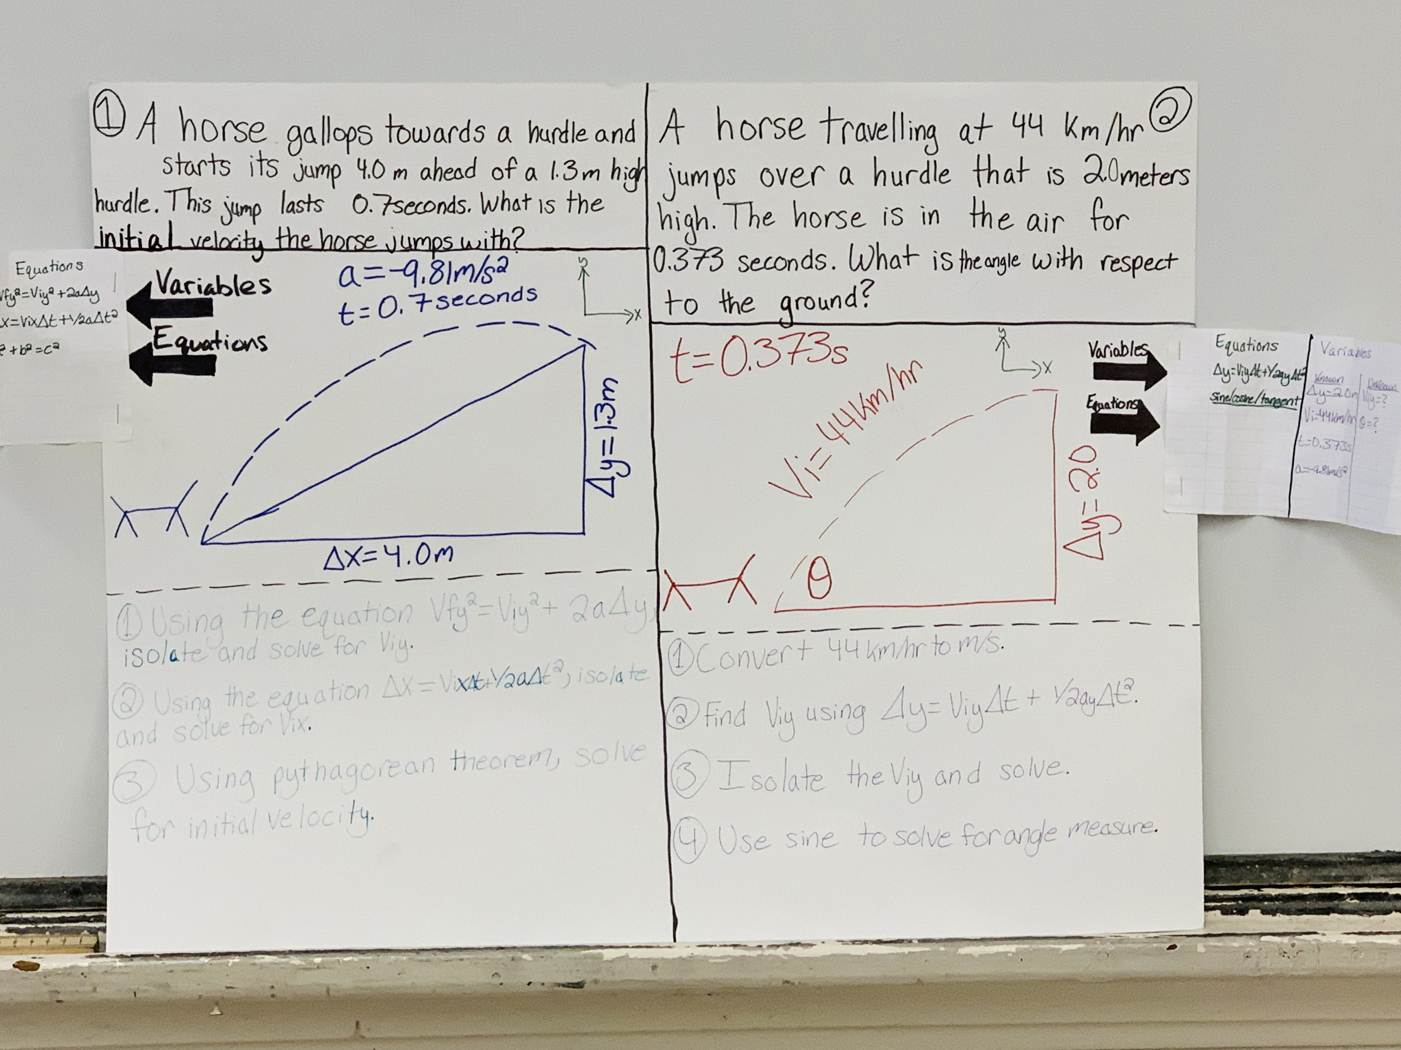 ① A horse gallops towards a hurdle and
starts its jump 4.0 m ahead of a 1.3 m high
hurdle. This jump lasts 0.7seconds. What is the
initial velocity the horse jumps with?
Equations
Vfy²=Viy²+2aΔy
x=VixΔt+½aΔt²
²+b²=c²
Variables
Equations
a=-9.81m/s²
t=0.7seconds
y
x
Δy=1.3m
Δx=4.0m
① Using the equation Vfy²=Viy²+2aΔy,
isolate and solve for Viy.
② Using the equation Δx=VixΔt+½aΔt², isolate
and solve for Vix.
③ Using pythagorean theorem, solve
for initial velocity.
② A horse travelling at 44 Km/hr
jumps over a hurdle that is 2.0meters
high. The horse is in the air for
0.373 seconds. What is the angle with respect
to the ground?
t=0.373s
Vi=44Km/hr
y
x
Δy=2.0
θ
Variables
Equations
Equations
Δy=ViyΔt+½ayΔt²
sine/cosine/tangent
Variables
Known
Δy=2.0m
Vi=44Km/hr
t=0.373s
a=-9.81m/s²
Unknown
Viy=?
θ=?
① Convert 44 km/hr to m/s.
② Find Viy using Δy=ViyΔt+½ayΔt².
③ Isolate the Viy and solve.
④ Use sine to solve for angle measure.